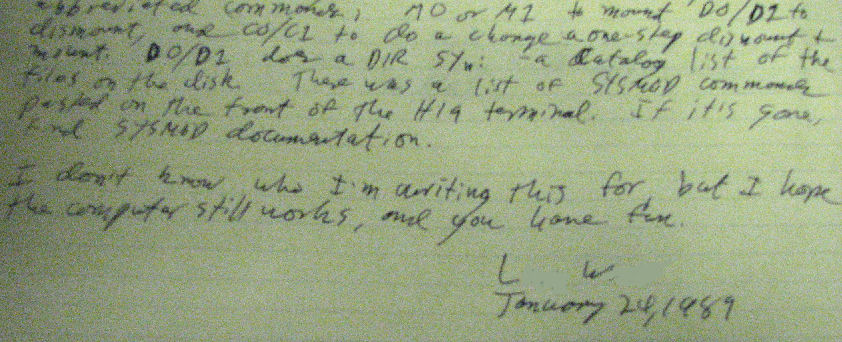 abbreviated commands; M0 or M1 to mount, D0/D1 to
dismount, and C0/C1 to do a change a one-step dismount +
mount. D0/D1 does a DIR SYn: - a Catalog list of the
files on the disk. There was a list of SYSMOD commands
pasted on the front of the H19 terminal. If it's gone,
find SYSMOD documentation.
I don't know who I'm writing this for, but I hope
the computer still works, and you have fun.
L W.
January 24, 1989